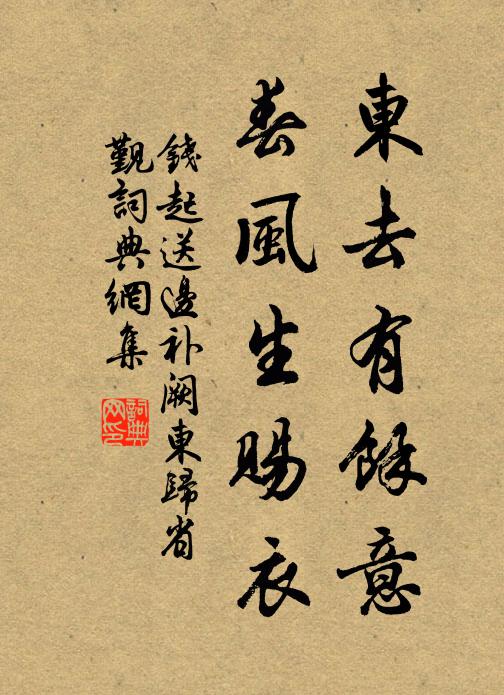 東去有餘意
春風生賜衣
錢起送邊补阙東歸省
觀詞典網集
詞典
网印